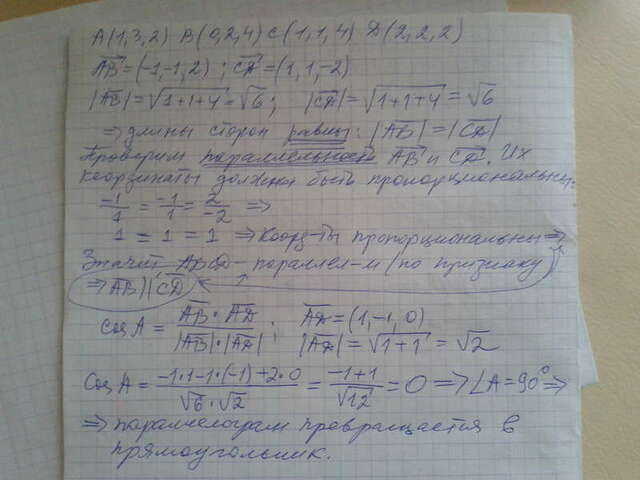 A(1,3,2) B(0,2,4) C(1,1,4) D(2,2,2)
AB=(-1,-1,2); CD=(1,1,-2)
|AB|=√1+1+4=√6; |CD|=√1+1+4=√6
⇒ длины сторон равны: |AB|=|CD|
Проверим параллельность AB и CD. Их
координаты должны быть пропорциональны:
-1/1 = -1/1 = 2/-2 ⇒
1 = 1 = 1 ⇒ Коорд-ты пропорциональны ⇒
Значит ABCD - параллел-м (по признаку)
⇒ AB||CD
cos A = AB·AD / |AB|·|AD|; AD=(1,-1,0)
|AD|=√1+1=√2
Cos A = -1·1-1·(-1)+2·0 / √6·√2 = -1+1 / √12 = 0 ⇒ ∠A=90° ⇒
⇒ параллелограм превращается в
прямоугольник.